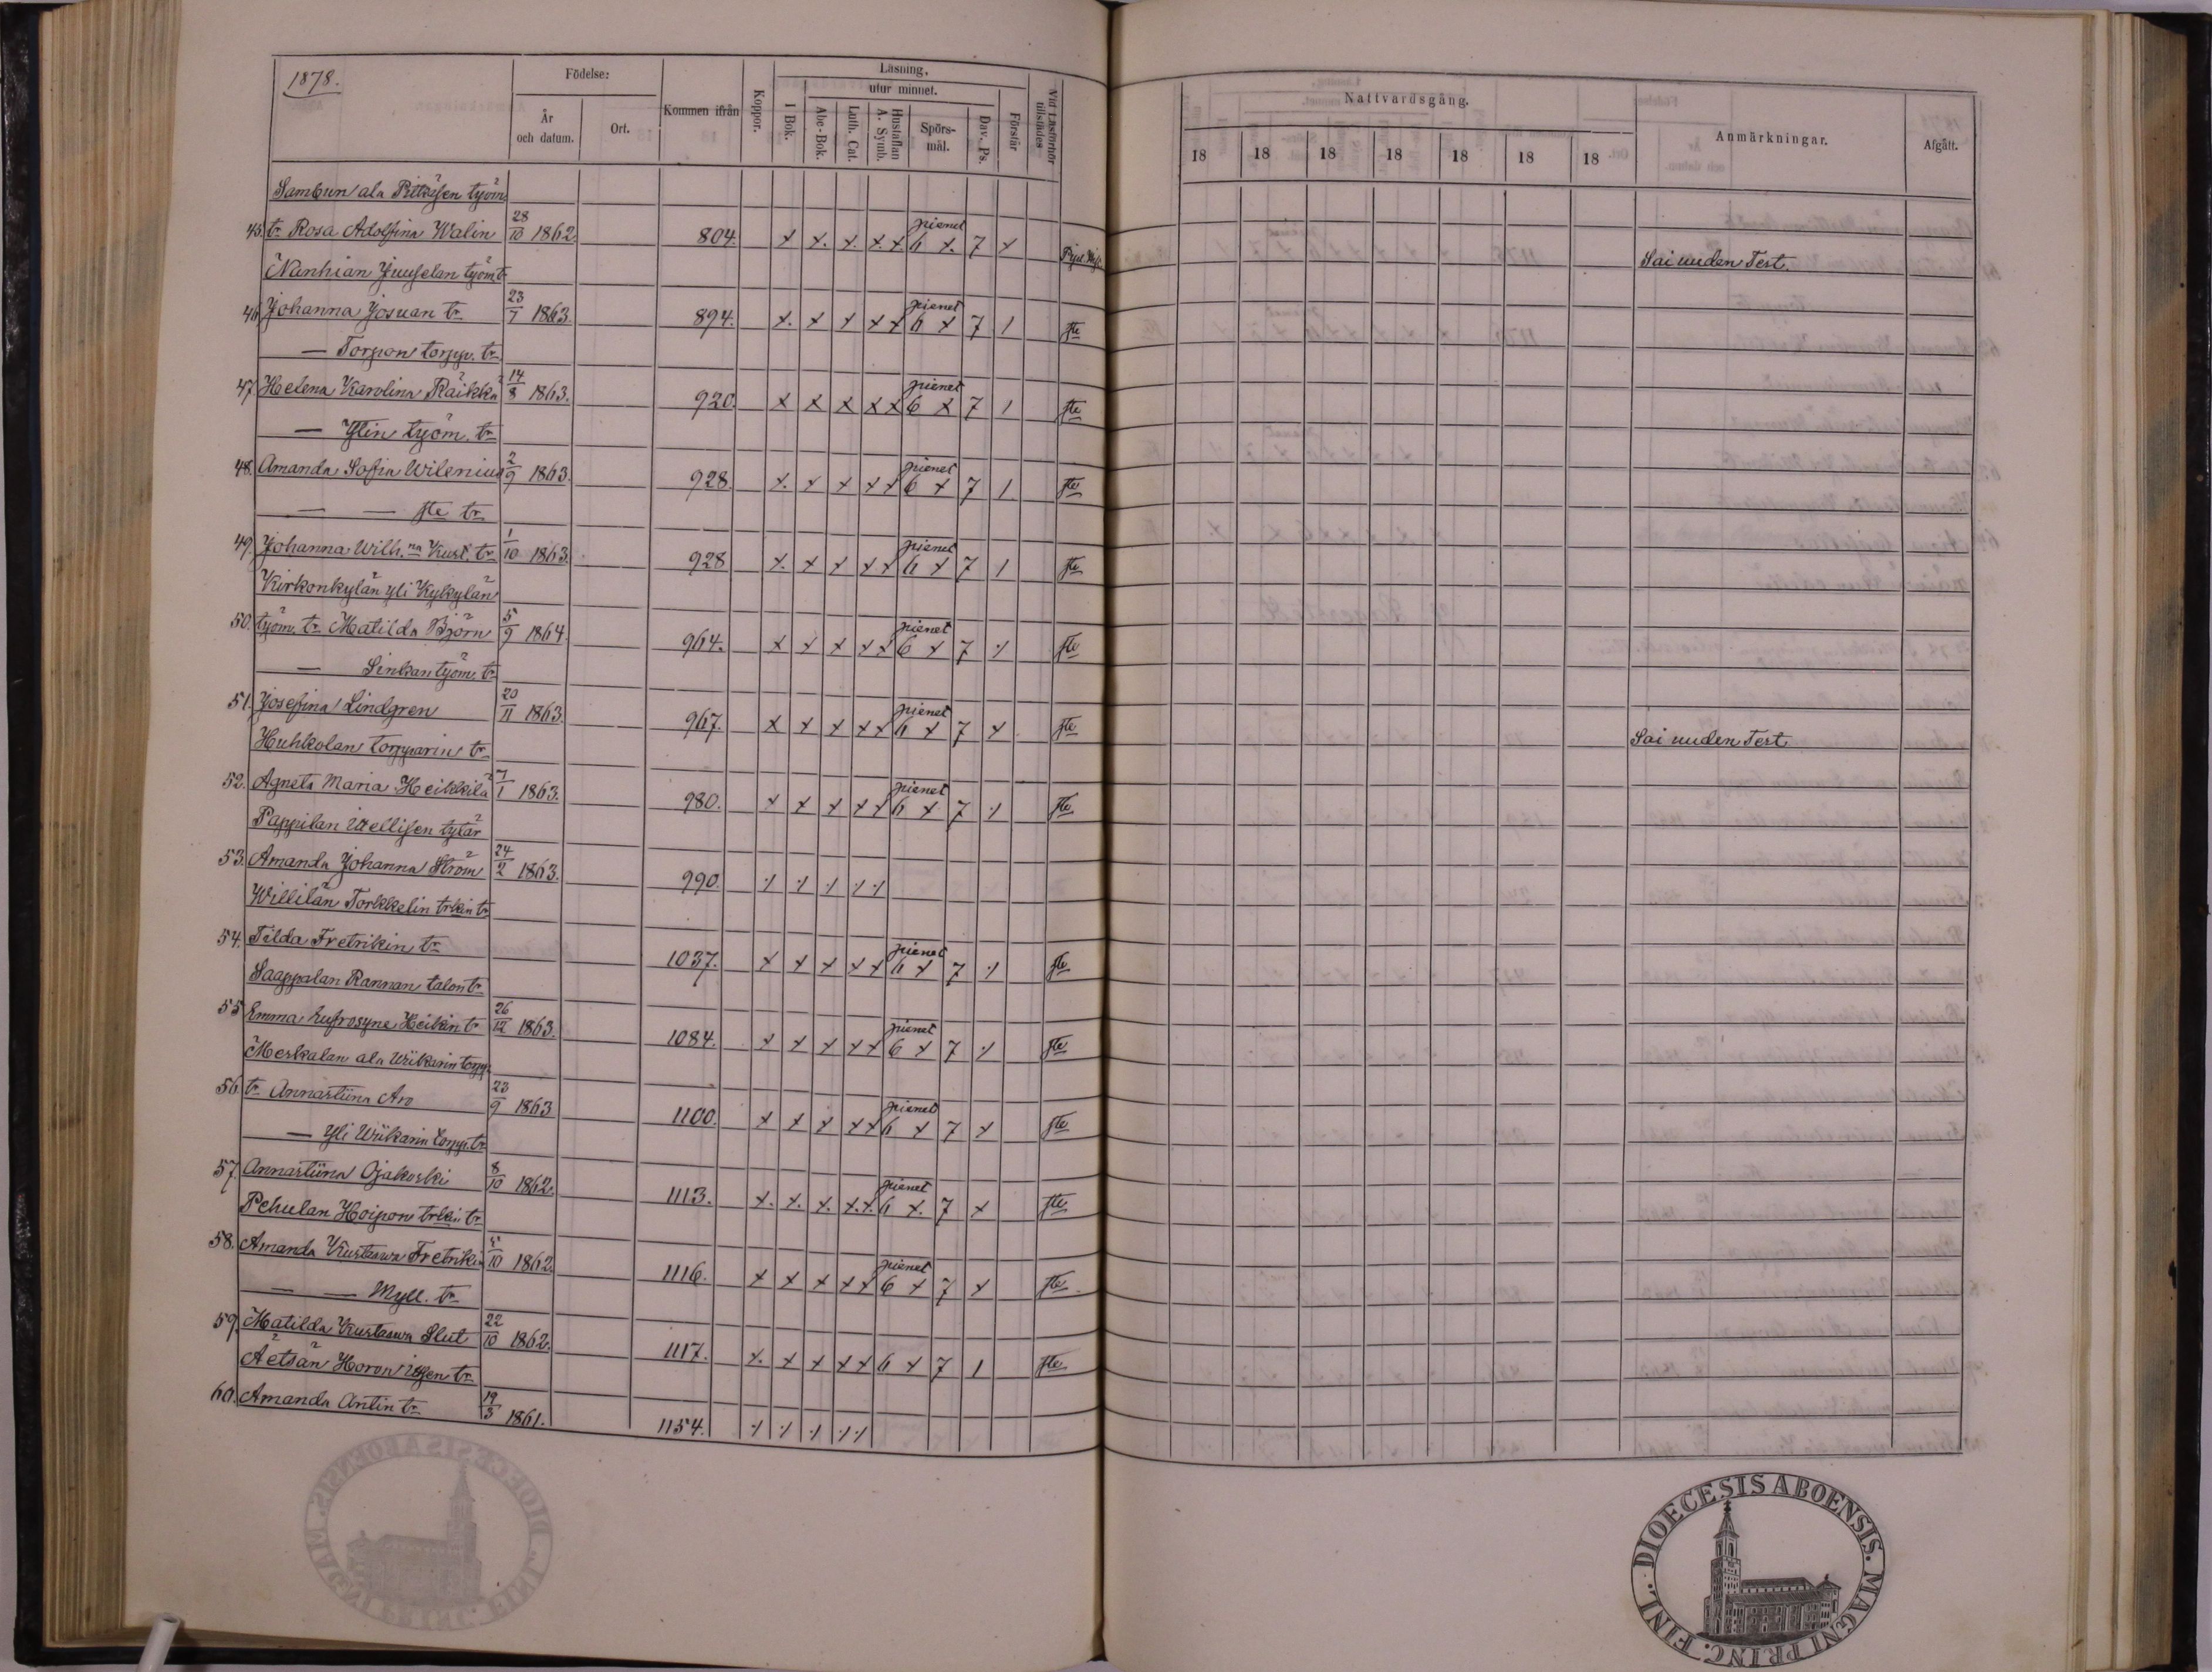 1878.
Födelse:
År och datum.
Ort.
Kommen ifrån
Koppor.
Läsning,
utur minnet.
I Bok.
Abc-Bok.
Luth. Cat.
Hustaflan A. Symb.
Spörs-mål.
Dav. Ps.
Förstår
Vid Läsförhör tillstädes
Nattvardsgång.
18 18 18 18 18 18 18
Anmärkningar.
Afgått.
Sammun ala Pitkäsen työm.
45. tr Rosa Adolfina Walin 28/10 1862. 804. x x. x. x. x pienet 6 x. 7 x
Sai uuden Test.
Nanhian Juuselan työm tr
46. Johanna Josuan tr 23/7 1863. 894. x. x x x x pienet 6 x 7 1 ste
— Torpon torpp. tr
47. Helena Karolina Räikkä 14/8 1863. 920. x x x x x pienet 6 x 7 1 ste
— Ylin työm. tr
48. Amanda Sofia Wilenius 2/9 1863. 928. x. x x x x pienet 6 x 7 1 ste
— — ste tr
49. Johanna Wilh.na Kust. tr 1/10 1863. 928 x. x x x x pienet 6 x 7 1 ste
Kirkonkylän yli Kykylän
50. työm. tr Matilda Björn 5/9 1864. 964. x x x x x pienet 6 x 7 ·/. ste
— Sinkan työm. tr
51. Josefina Lindgren 20/11 1863. 967. x x x x x pienet 6 x 7 x ste
Sai uuden Test
Huhkolan torpparin tr
52. Agneta Maria Heikkilä 7/1 1863. 980. x x x x x pienet 6 x 7 ·/. ste
Pappilan Wellisen tytär
53. Amanda Johanna Ström 24/2 1863. 990. ·/. ·/. ·/. ·/. ·/.
Willilän Torkkelin trkin tr
54. Tilda Fretrikin tr 1037. x x x x x pienet 6 x 7 ·/. ste
Saappalan Rannan talon tr
55 Emma Eufrosyne Heikin tr 26/12 1863. 1084. x x x x x pienet 6 x 7 ·/. ste
Meskalan ala Wiikarin torpp.
56. tr Annastiina Aro 23/9 1863 1100. x x x x x pienet 6 x 7 x ste
— Yli Wiikarin torpp. tr
57. Annastiina Ojakoski 8/10 1862. 1113. x. x. x. x. x. pienet 6 x. 7 x ste
Pehulan Hoipon trkin tr
58. Amanda Kustaawa Fretrikin 5/10 1862. 1116. x x x x x pienet 6 x 7 x ste
— — Myll. tr
59. Matilda Kustaawa Slut 22/10 1862. 1117. x. x x x x 6 x 7 1 ste
Äetsän Horon itsen tr
60. Amanda Antin tr 19/3 1861. 1154. ·/. ·/. ·/. ·/. ·/.
DIOECESIS ABOENSIS. MAGNI PRINC. FINL.